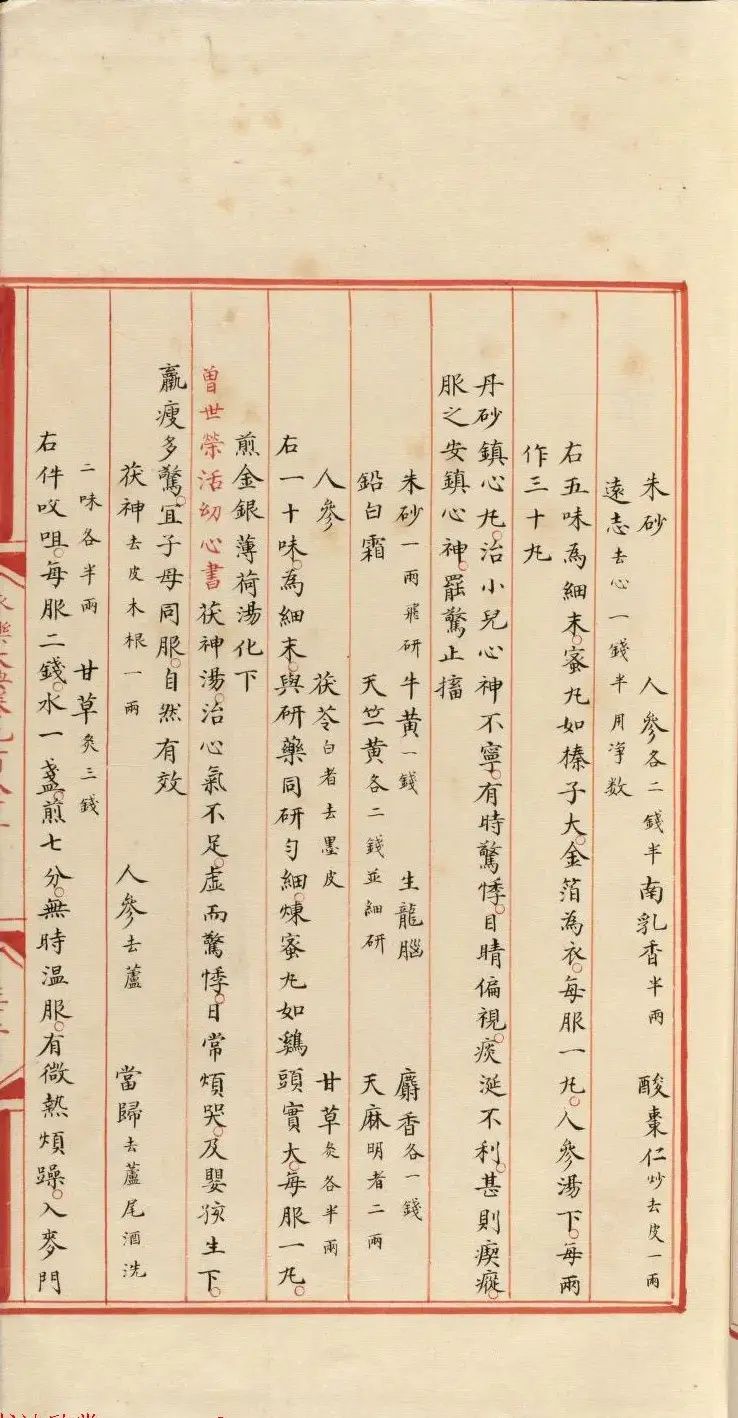 朱砂　人參各二錢半　南乳香半兩　酸棗仁炒去皮一兩
遠志去心一錢半用淨數
右五味為細末。蜜丸如榛子大。金箔為衣。每服一丸。人參湯下。每兩
作三十丸
丹砂鎮心丸。治小兒心神不寧。有時驚悸。目睛偏視。痰涎不利。甚則瘈瘲。
服之安鎮心神。罷驚止搐
朱砂一兩飛研　牛黃一錢　生龍腦　麝香各一錢
鉛白霜　天竺黃各二錢並細研　天麻明者二兩
人參　茯苓白者去墨皮　甘草炙各半兩
右一十味。為細末。與研藥同研勻細。煉蜜丸如鷄頭實大。每服一丸。
煎金銀薄荷湯化下
曾世榮活幼心書茯神湯。治心氣不足。虛而驚悸。日常煩哭。及嬰孩生下。
羸瘦多驚。宜子母同服。自然有效
茯神去皮木根一兩　人參去蘆　當歸去蘆尾酒洗
二味各半兩　甘草炙三錢
右件㕮咀。每服二錢。水一盞。煎七分。無時溫服。有微熱煩躁。入麥門